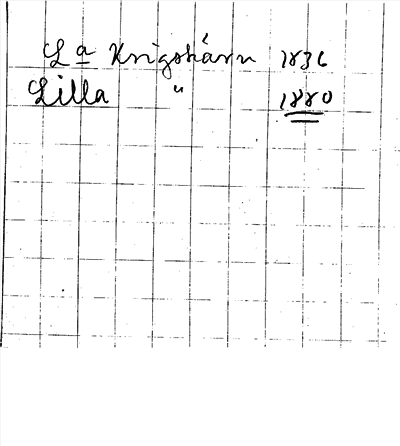 La Krigshärn 1836
Lilla " 1880